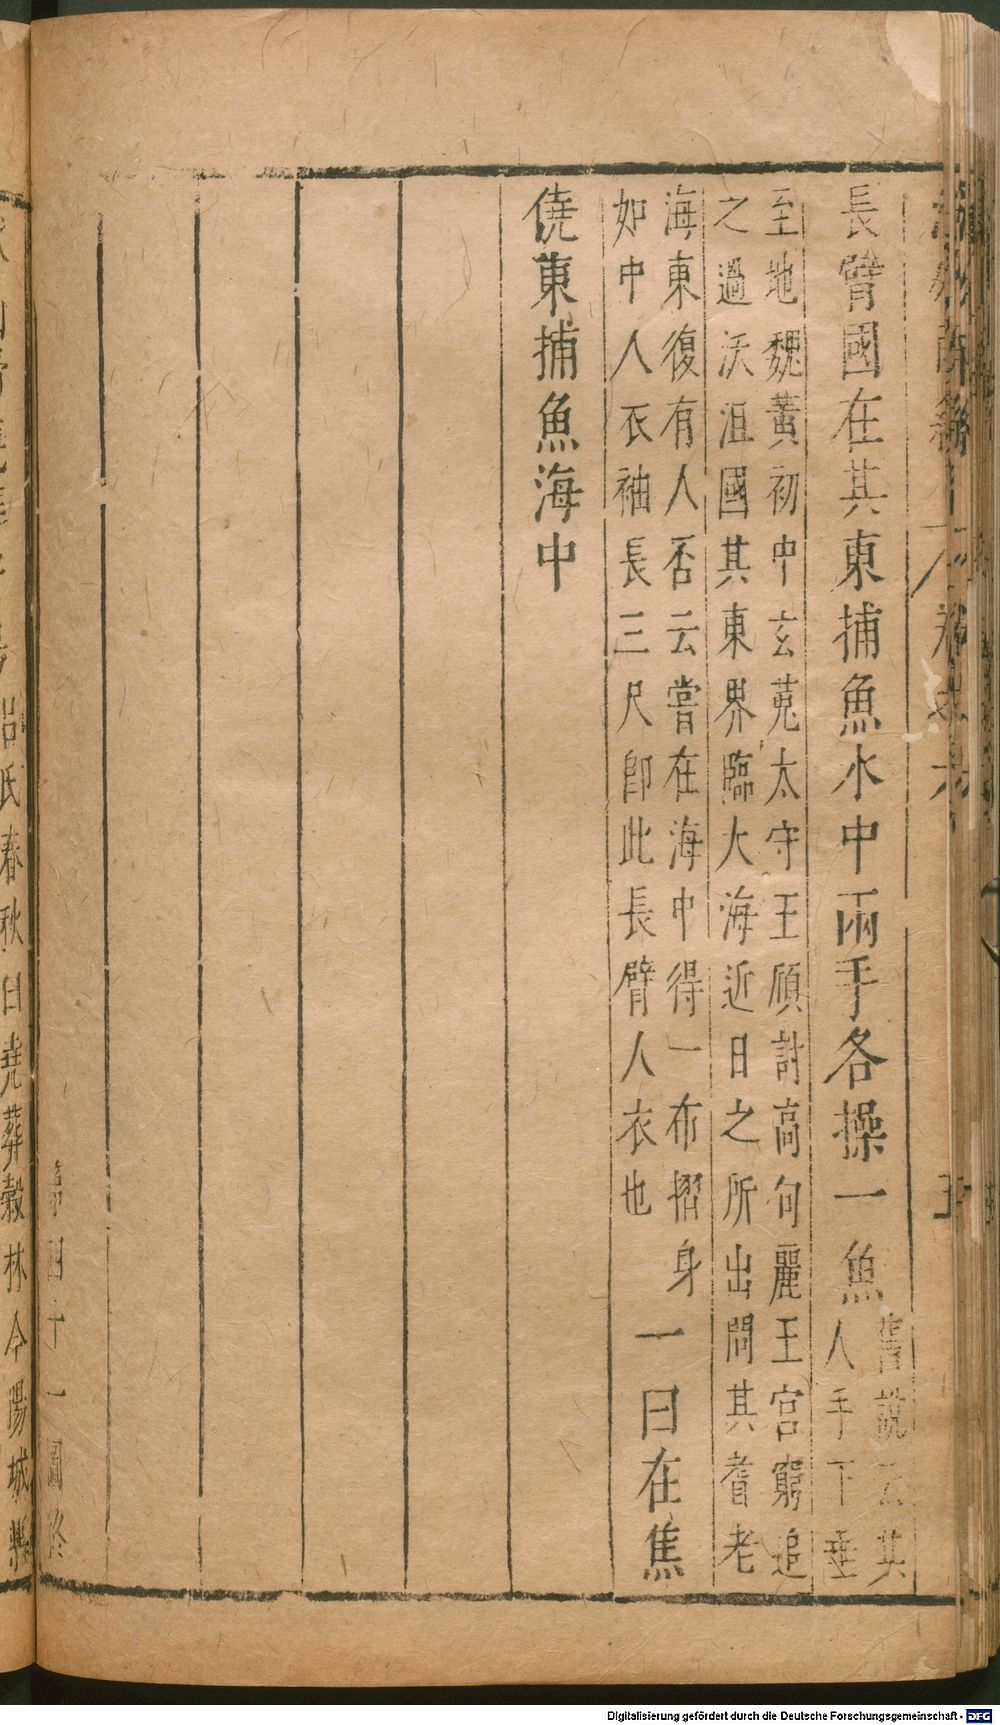 長臂國在其東捕魚水中兩手各操一魚舊說云其
人手下垂
至地魏黃初中玄菟太守王頎討高句麗王宮窮追
之過沃沮國其東界臨大海近日之所出問其耆老
海東復有人否云嘗在海中得一布褶身
如中人衣袖長三尺即此長臂人衣也一曰在焦
僥東捕魚海中
四十一圖終
呂氏春秋曰堯葬穀林今陽城縣
Digitalisierung gefördert durch die Deutsche Forschungsgemeinschaft - DFG